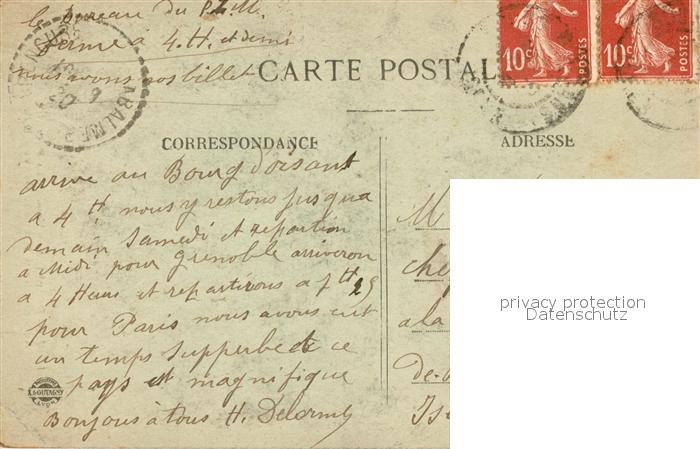 le bureau du P.L.M.
ferme à 4. H. et demi
nous avons nos billet
CARTE POSTAL
10c
POSTES
10c
POSTES
CORRESPONDANCE
ADRESSE
arrive au Bourg d'oisant
a 4 H. nous y restons jusqua
demain Samedi et repartion
a Midi pour Grenoble arriveron
a 4 Heurs et repartirons a 7 H 25
pour Paris nous avons eut
un temps supperbe et ce
pays est magnifique
Bonjours à tous H. Delorme
M
che
a la
de
Is
LYON
privacy protection
Datenschutz